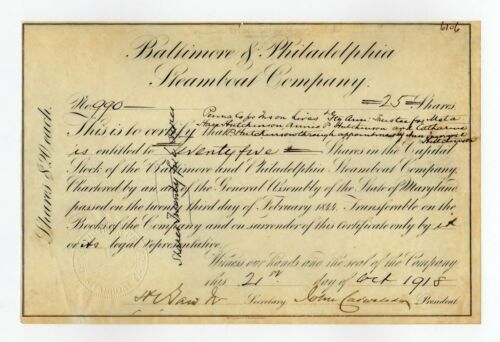 6106
Baltimore & Philadelphia
Steamboat Company.
No. 990 =25= Shares
Penna Co for Ins on Lives & Gty Ann: Trustee for Meta
This is to certify that
Hutchinson Annie P. Hutchinson and Catharine
Hutchinson through appointment by
Hutchinson
is entitled to Seventy five Shares in the Capital
Stock of the Baltimore and Philadelphia Steamboat Company.
Chartered by an act of the General Assembly of the State of Maryland
passed on the twenty third day of February 1844. Transferable on the
Books of the Company and on surrender of this Certificate only by it
or its legal representative.
Witness our hands and the seal of the Company
this 21st day of Oct 1918
Secretary John Cadwalader President
Shares $ each.
Shares Twenty five